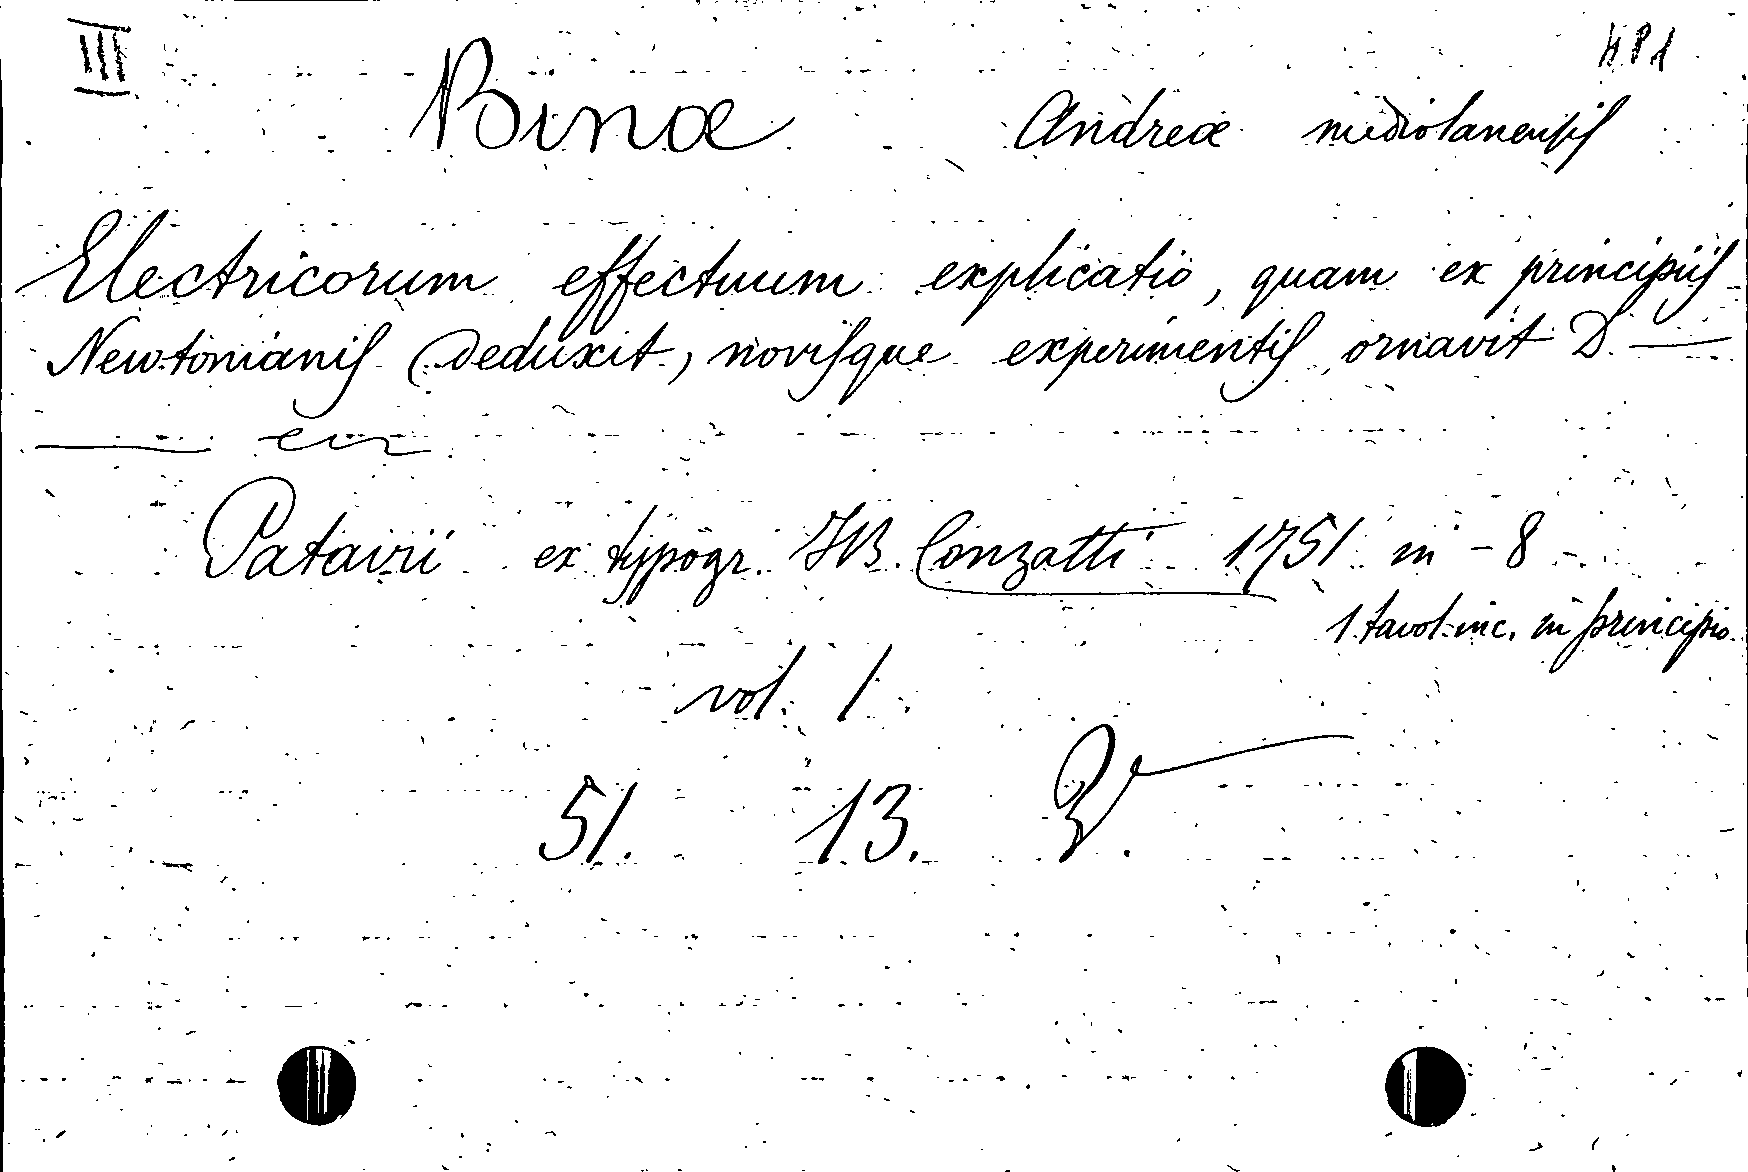 III HP1
Binæ Andreæ mediolanensis
Electricorum effectuum explicatio, quam ex principiis
Newtonianis deduxit, novisque experimentis ornavit D. —
— ecc
Patavii ex typogr. JB. Conzatti 1751 in - 8
1 tavol. inc. in principio
vol. 1
51. 13.